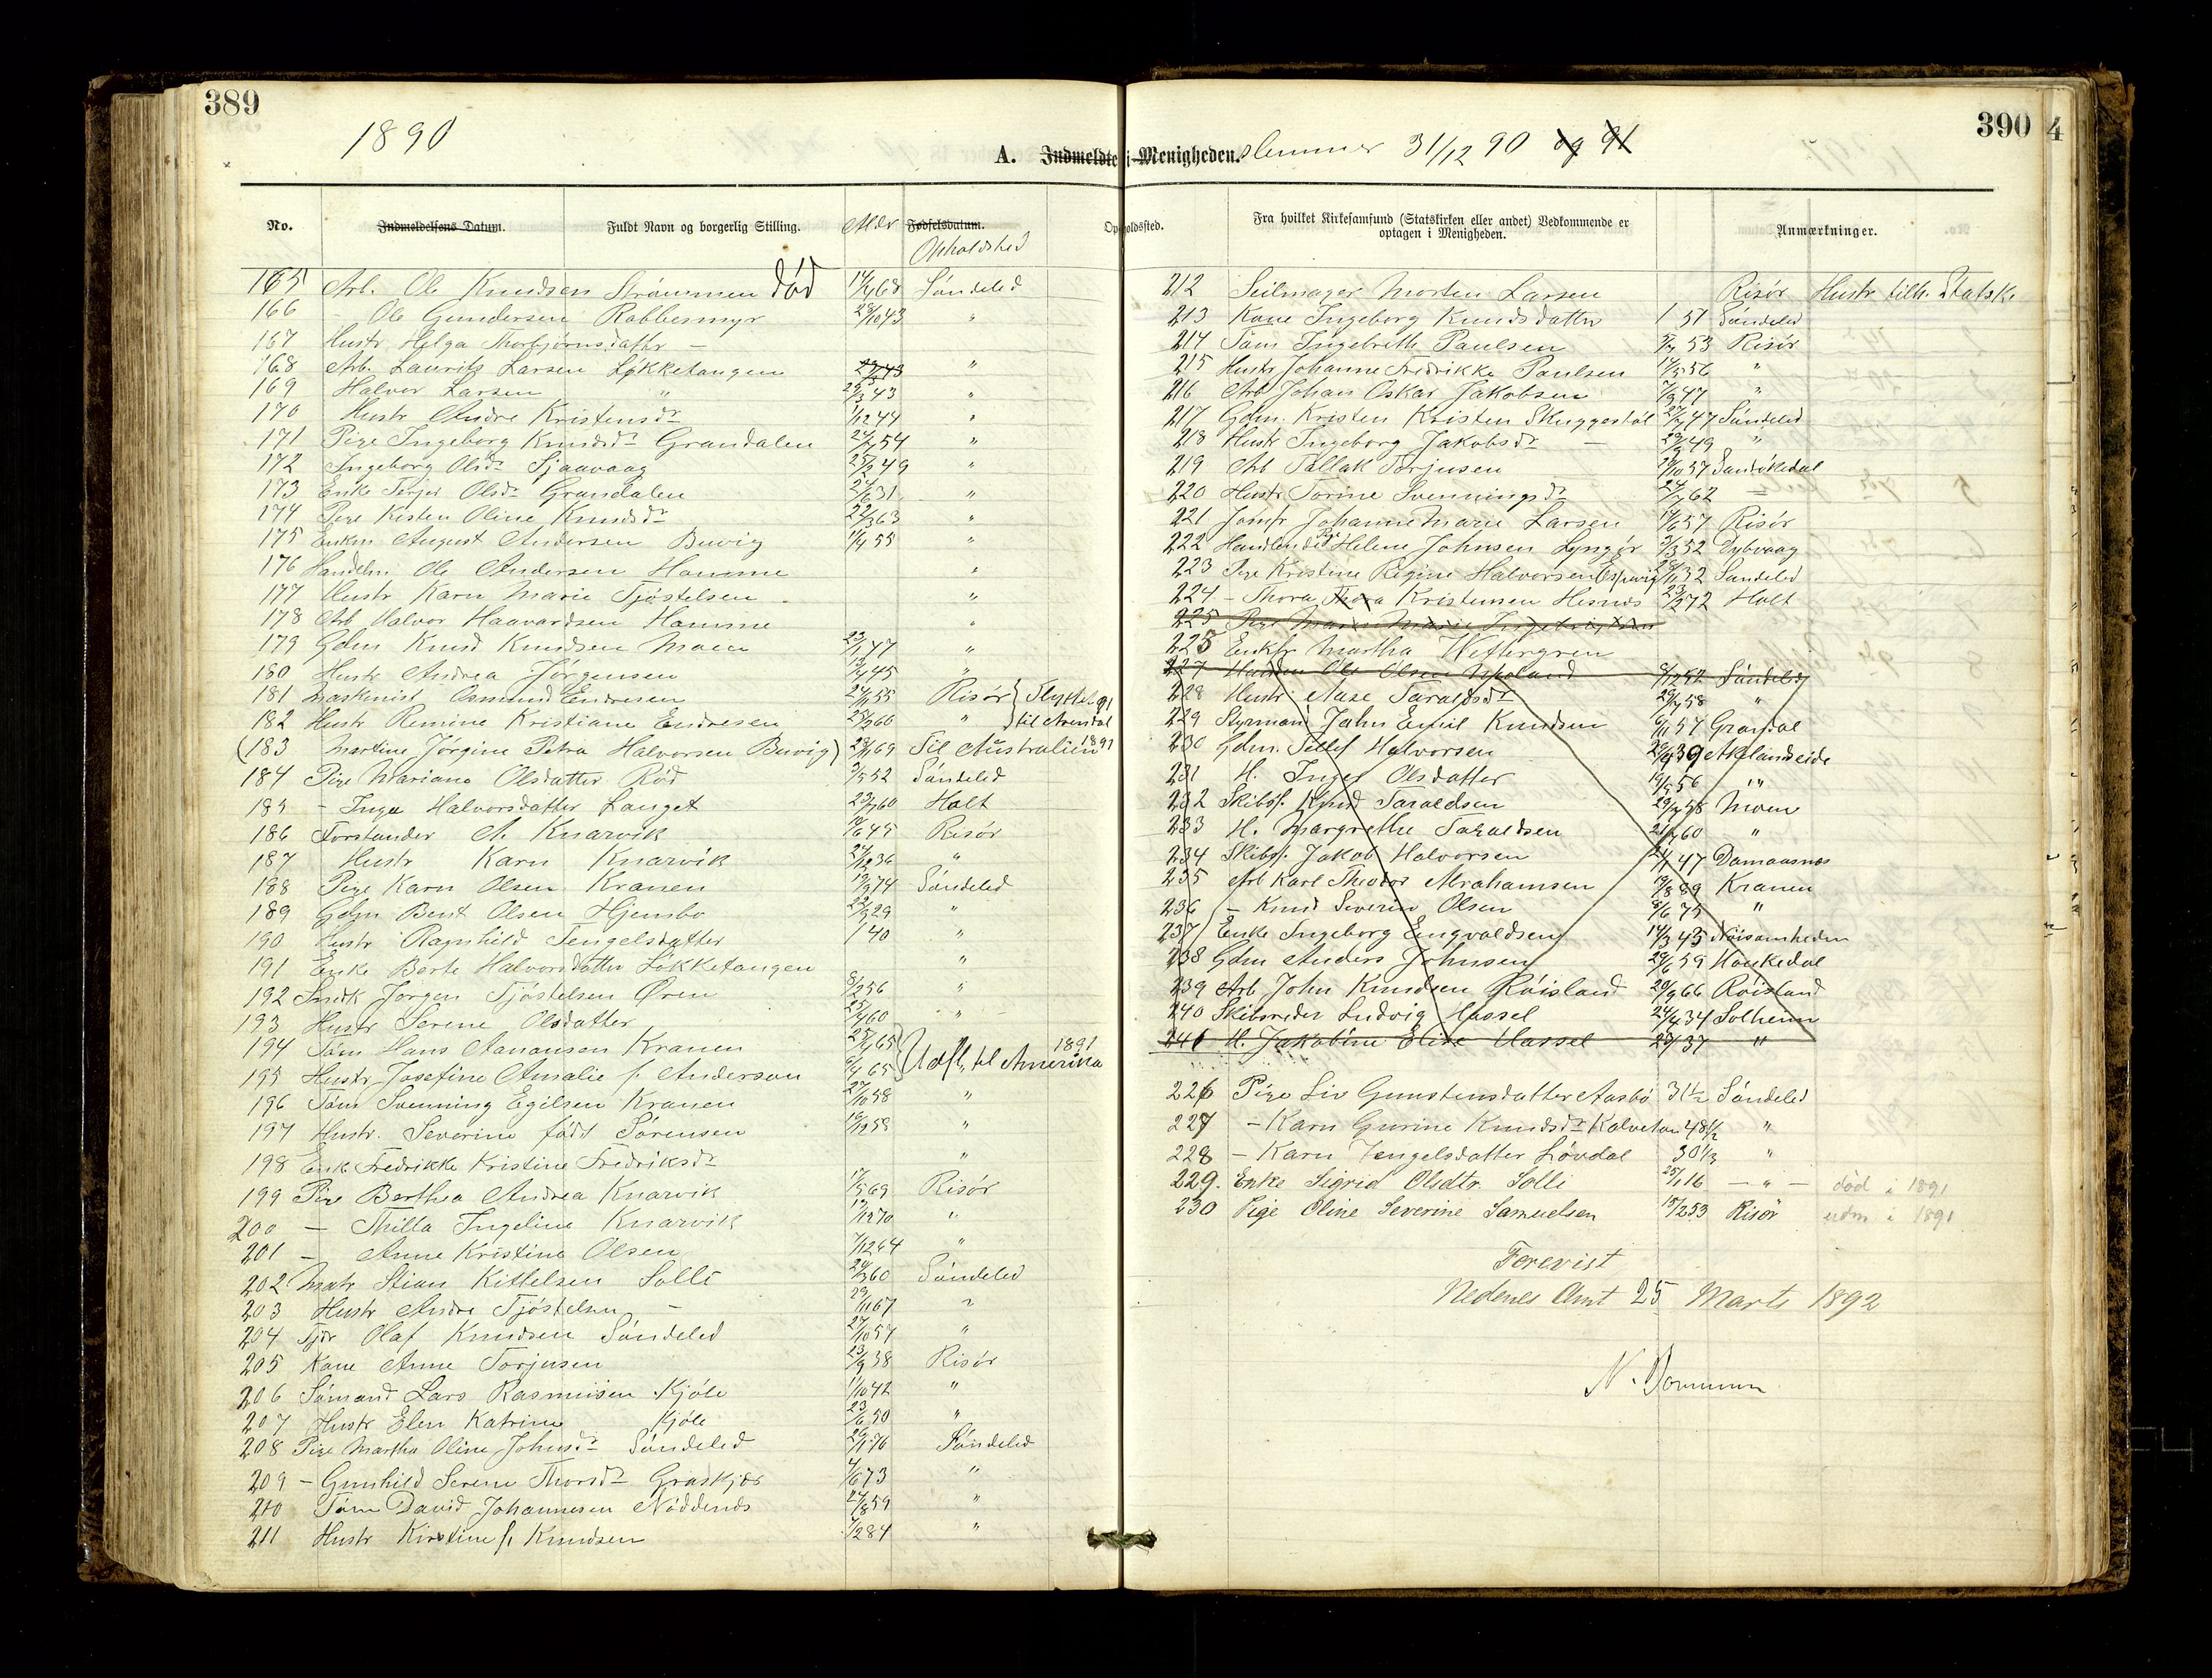 389
1890
A. Indmeldte i Menigheden.
No. Indmeldelsens Datum. Fuldt Navn og borgerlig Stilling. Alder Fødselsdatum. Opholdssted.
Opholdsted
165 Arb. Ole Knudsen Strømmen død 14/4 68 Søndeled
166 - Ole Gundersen Rabbesmyr 28/10 43 "
167 Hustr Helga Thorbjørnsdatter -
168 Arb. Laurits Larsen Løkketangen "
169 Halvor Larsen " 29/3 43 "
170 Hustr Andre Kristensdr 1/12 44 "
171 Pige Ingeborg Knudsdr Grandalen 54 "
172 Ingeborg Olsdr Sjaavaag 25/2 49 "
173 Enke Terjer Olsdr Grandalen 24/6 31 "
174 Pige Kisten Oline Knudsdr 22/3 63 "
175 Enkm August Andersen Buvig 1/4 55 "
176 Handelm Ole Andersen Hamme "
177 Hustr Karn Marie Tjøstelsen "
178 Arb Halvor Haavardsen Hamme "
179 Gdm Knud Knudsen Moen 23/1 47 "
180 Hustr Andrea Jørgensen 45 "
181 Maskinist Osmund Endresen 55 Risør } Flyttet 91
182 Hustr Remine Kristiane Endresen 60 " } til Arendal
(183 Martine Jørgine Petra Halvorsen Buvig) 69 Til Australien 1891
184 Pige Mariane Olsdatter Rød 3/5 52 Søndeled
185 - Inga Halvorsdatter Langet 23/7 60 Holt
186 Forstander A. Knarvik 45 Risør
187 Hustr Karn Knarvik 36 "
188 Pige Karn Olsen Kranen 74 Søndeled
189 Gdm Bent Olsen Hjembo 29 "
190 Hustr Ragnhild Tengelsdatter 1 40 "
191 Enke Berte Halvorsdatter Løkketangen "
192 Snedk Jørgen Tjøstelsen Øren 8/2 56 "
193 Hustr Serene Olsdatter 60 "
194 Tøm Hans Aanansen Kranen 65 } 1891
195 Hustr Josefine Amalie f. Anderson 6/4 65 } Udfl. til Amerika
196 Tøm Svenning Egilsen Kranen 27/10 58 "
197 Hustr. Severine født Sørensen 58 "
198 Enk Fredrikke Kristine Fredriksdr "
199 Pige Berthea Andrea Knarvik 17/5 69 Risør
200 - Thilla Ingeline Knarvik 70 "
201 - Anne Kristine Olsen 7/12 64 "
202 Matr Stian Kittelsen Solli 60 Søndeled
203 Hustr Andre Tjøstelsen - 29/11 67 "
204 Tjdr Olaf Knudsen Søndeled 27/10 57 "
205 Kone Anne Torjusen 23/9 38 Risør
206 Sømand Lars Rasmussen Kjøle 1/10 42 "
207 Hustr Elen Katrine Kjøle 23/6 50 "
208 Pige Martha Oline Johnsdr Søndeled 76 Søndeled
209 - Gunhild Serene Thorsdr Graskjær 4/6 73 "
210 Tøm David Johannesen Nøddenes 24/8 59 "
211 Hustr Kirstine f. Knudsen "
390
4
31/12 90 og 91
Fra hvilket Kirkesamfund (Statskirken eller andet) Vedkommende er
optagen i Menigheden. Anmærkninger.
212 Seilmager Morten Larsen Risør Hustr tilh. Statsk.
213 Kone Ingeborg Knudsdatter 1 51 Søndeled
214 Tøm Ingebrith Paulsen 53 Risør
215 Hustr Johanne Fredrikke Paulsen 17/5 56 "
216 Arb Johan Oskar Jakobsen 7/9 47 "
217 Gdm. Kristen Kristen Skuggestøl 47 Søndeled
218 Hustr Ingeborg Jakobsdr - 49 "
219 Arb Tallak Torjusen 57 Sandøkedal
220 Hustr Torine Svenningsdr 62
221 Jomfr Johanne Marie Larsen 17/6 57 Risør
222 Handlende Helene Johnsen Lyngør 3/3 52 Dybvaag
223 Pige Kristine Regine Halvorsen Espevig 32 Søndeled
224 - Thora Thora Kristensen Hesnes 72 Holt
225
225 Enkfr Martha Heftergren
227 Ole Olsen 52 Søndeled
228 Hustr Aase Taraldsdr 29/7 58 "
229 Styrmand John Emil Knudsen 6/11 57 Grandal
230 Gdm. Tellef Halvorsen 39 Aklandseide
231 H. Inger Olsdatter 19/5 56 "
232 Skibsf. Knud Taraldsen 58 Moen
233 H. Margrethe Taraldsen 60 "
234 Skibsf. Jakob Halvorsen 47 Damaasnes
235 Arb Karl Theodor Abrahamsen 19/8 89 Kranen
236 - Knud Severin Olsen 9/6 75 "
237 Enke Ingeborg Engvaldsen 14/3 45 Nøisomheden
238 Gdm Anders Johnsen 29/6 59 Haukedal
239 Arb John Knudsen Røisland 29/9 66 Røisland
240 Skibsreder Ludvig Hassel 24/4 34 Solheim
241 H. Jakobine Elise Hassel 37 "
226 Pige Liv Gunstensdatter Aasbø 31½ Søndeled
227 - Karn Gurine Knudsdr Kalvetan 48½ "
228 - Karn Tengelsdatter Løvdal 30⅓ "
229. Enke Sigrid Olsdtr. Solli 25/1 16 - " - død i 1891
230 Pige Oline Severine Samuelsen 15/2 53 Risør udm i 1891
Forevist
Nedenes Amt 25 Marts 1892